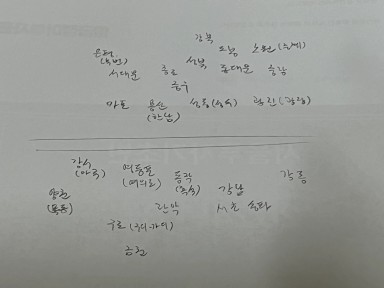 강북
은평 도봉 노원(상계)
(녹번) 성북
서대문 종로 동대문 중랑
중구
마포 용산 성동(성수) 광진(광장)
(한남)
강서 영등포 동작 강동
(마곡) (여의도) (흑석) 강남
양천 관악 서초 송파
(목동)
구로(구디·가디)
금천